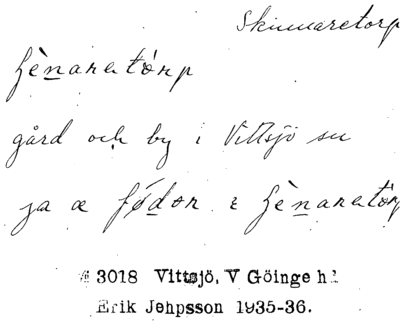 Skinnaretorp
ʃènarətórp
gård och by i Vittsjö sn
ja æ fǿdər i ʃènarətórp
3018 Vittsjö, V Göinge hd
Erik Jeppsson 1935-36.